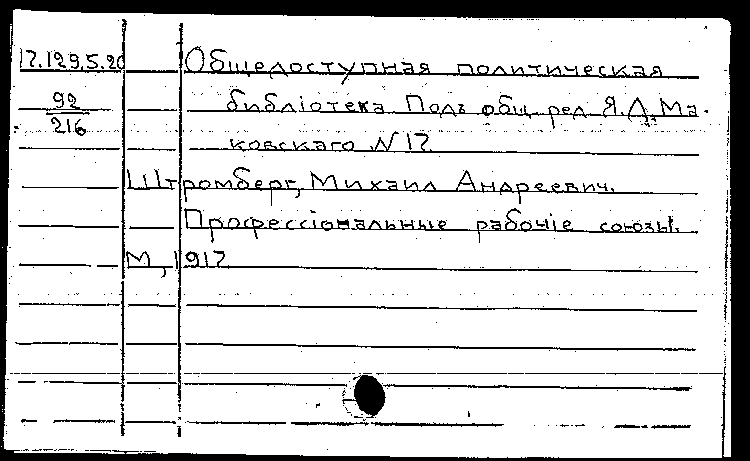 17.129.5.20 Общедоступная политическая
92 библіотека Подъ общ. ред. Я.Д. Ма-
216 ковскаго N 17
Штромберг, Михаил Андреевич.
Професcіональные рабочіе союзы.
М, 1917